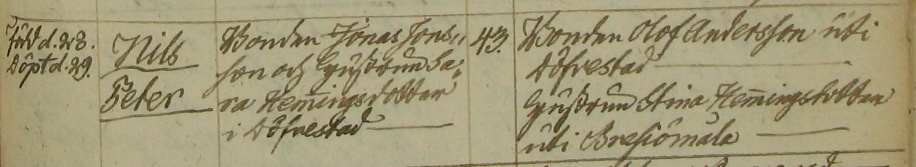 Född d. 28.
Döpt d. 29.
Nils
Peter
Bonden Jonas Jons„
son och Hustrun Sa„
ra Hemingsdotter
i Döfrestad
43.
Bonden Olof Andersson uti
Döfrestad
Hustrun Stina Hemingsdotter
uti Bresiömåla